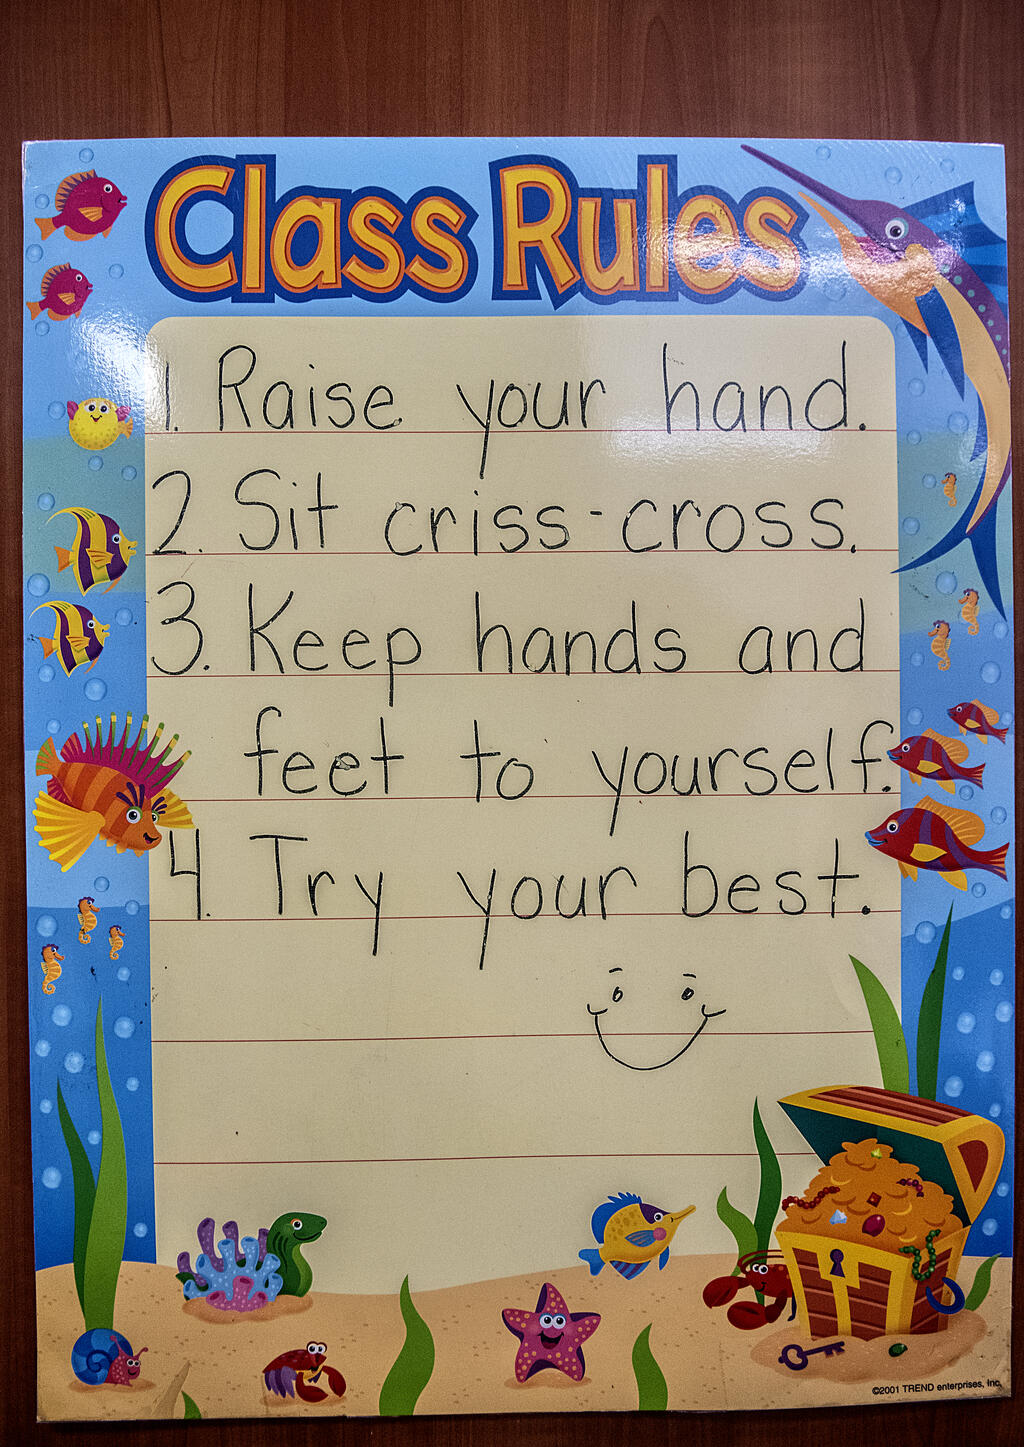 Class Rules
1. Raise your hand.
2. Sit criss-cross.
3. Keep hands and
feet to yourself.
4. Try your best.
©2001 TREND enterprises, Inc.